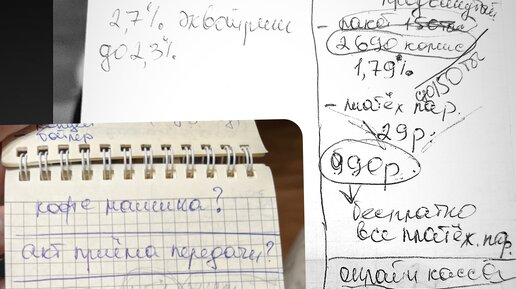 2,7% эквайринг
до 2,3%
пакет 150тб
2690 комис
1,79%
до 150тб
- платёж пор.
29р.
990р.
бесплатно
все платёж. пор.
онлайн касса
бойлер
кофе машинка?
акт приёма передачи?